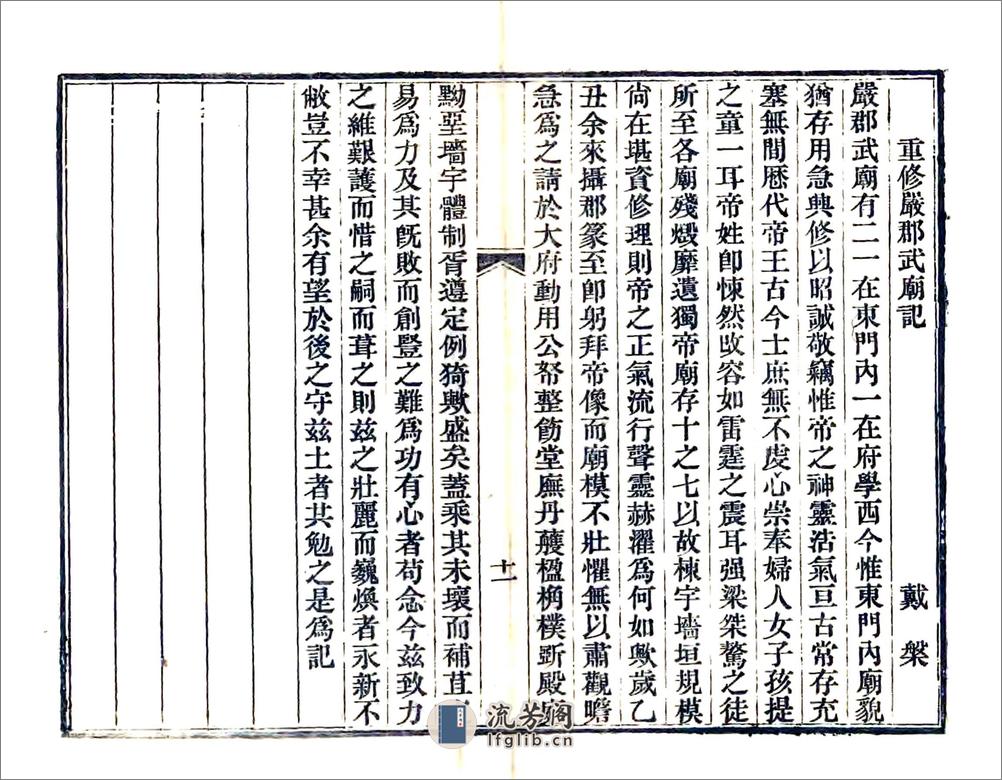 重修嚴郡武廟記 戴槃
嚴郡武廟有二一在東門內一在府學西今惟東門內廟貌
猶存用急興修以昭誠敬竊惟帝之神靈浩氣亘古常存充
塞無間歷代帝王古今士庶無不虔心崇奉婦人女子孩提
之童一耳帝姓卽悚然改容如雷霆之震耳强梁桀驁之徒
所至各廟殘燬靡遺獨帝廟存十之七以故棟宇墻垣規模
尙在堪資修理則帝之正氣流行聲靈赫濯爲何如歟歲乙
丑余來攝郡篆至卽躬拜帝像而廟模不壯懼無以肅觀瞻
急爲之請於大府動用公帑整飭堂廡丹雘楹桷樸斲殿
十一
黝堊墻宇體制胥遵定例猗歟盛矣蓋乘其未壞而補苴
易爲力及其旣敗而創豎之難爲功有心者苟念今茲致力
之維艱護而惜之嗣而葺之則茲之壯麗而巍煥者永新不
敝豈不幸甚余有望於後之守茲土者共勉之是爲記
流芳閣
lfglib.cn